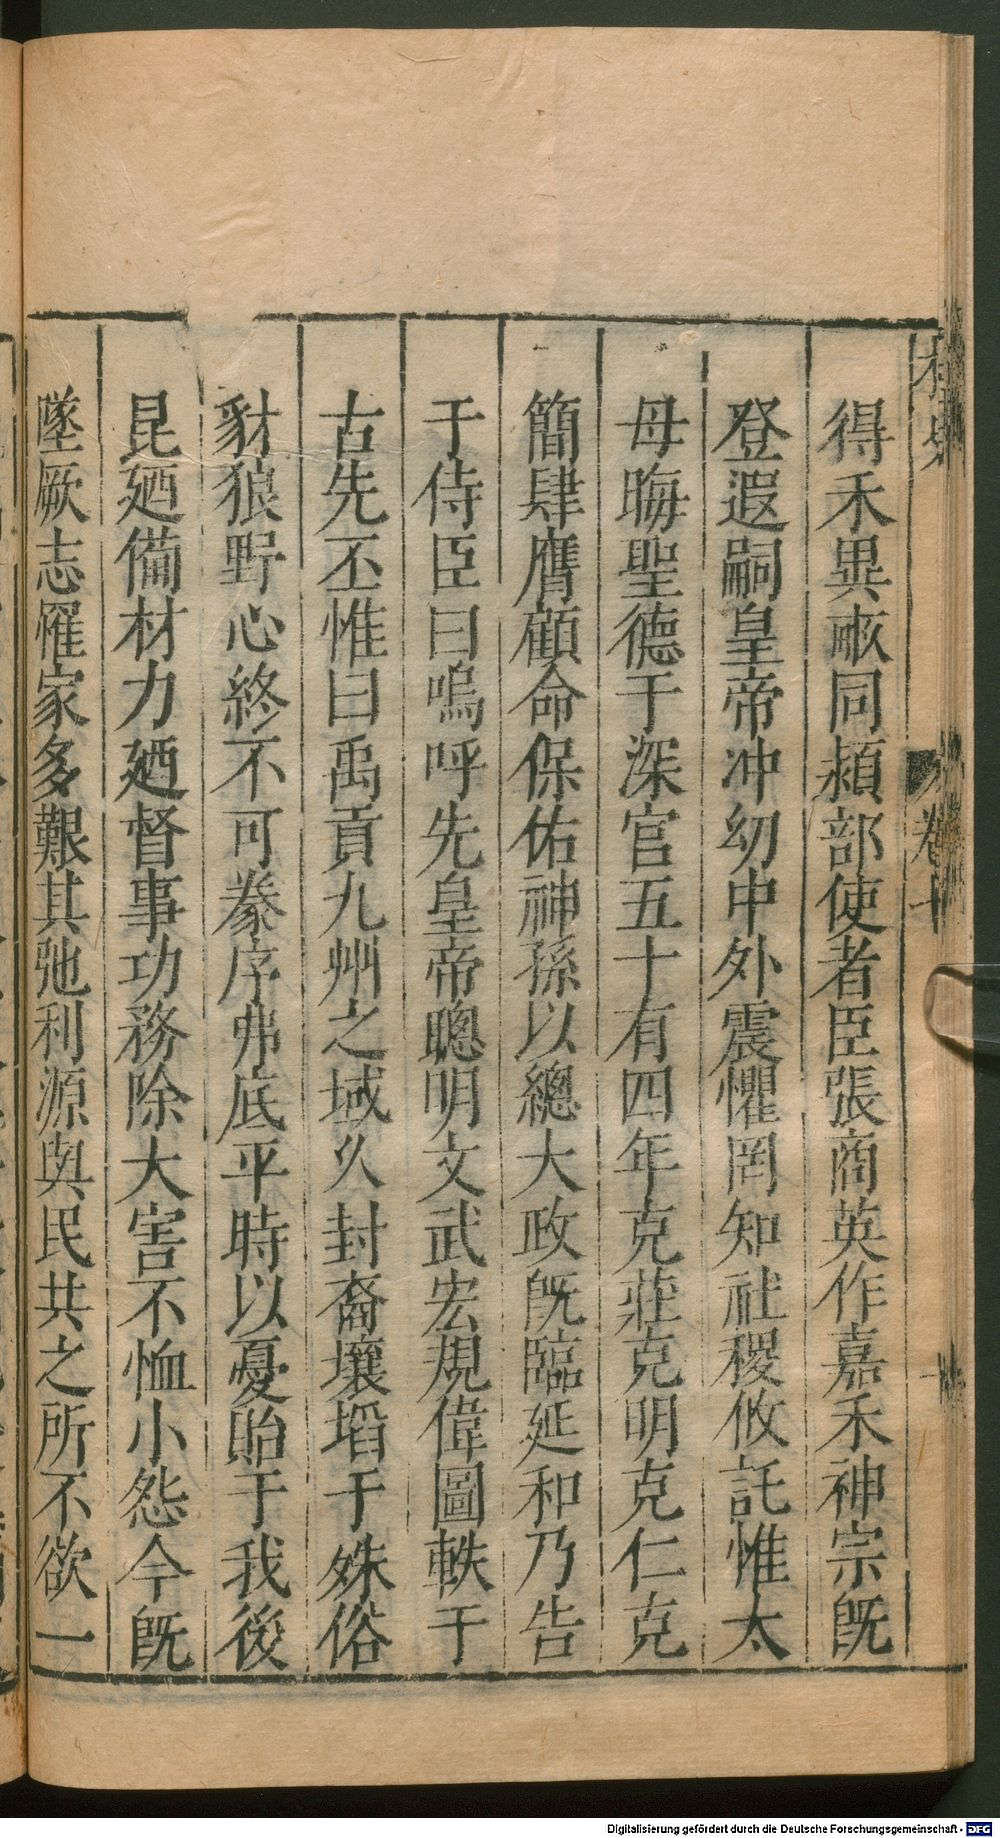 得禾異畝同頴部使者臣張商英作嘉禾神宗旣
登遐嗣皇帝冲幼中外震懼罔知社稷攸託惟太
母晦聖德于深宫五十有四年克莊克明克仁克
簡肆膺顧命保佑神孫以總大政旣臨延和乃告
于侍臣曰嗚呼先皇帝聰明文武宏規偉圖軼于
古先丕惟曰禹貢九州之域久封裔壤搯于殊俗
豺狼野心終不可豢序弗底平時以憂貽于我後
昆廼備材力廼督事功務除大害不恤小怨今旣
墜厥志惟家多艱其弛利源與民共之所不欲一
卷十
Digitalisierung gefördert durch die Deutsche Forschungsgemeinschaft - DFG